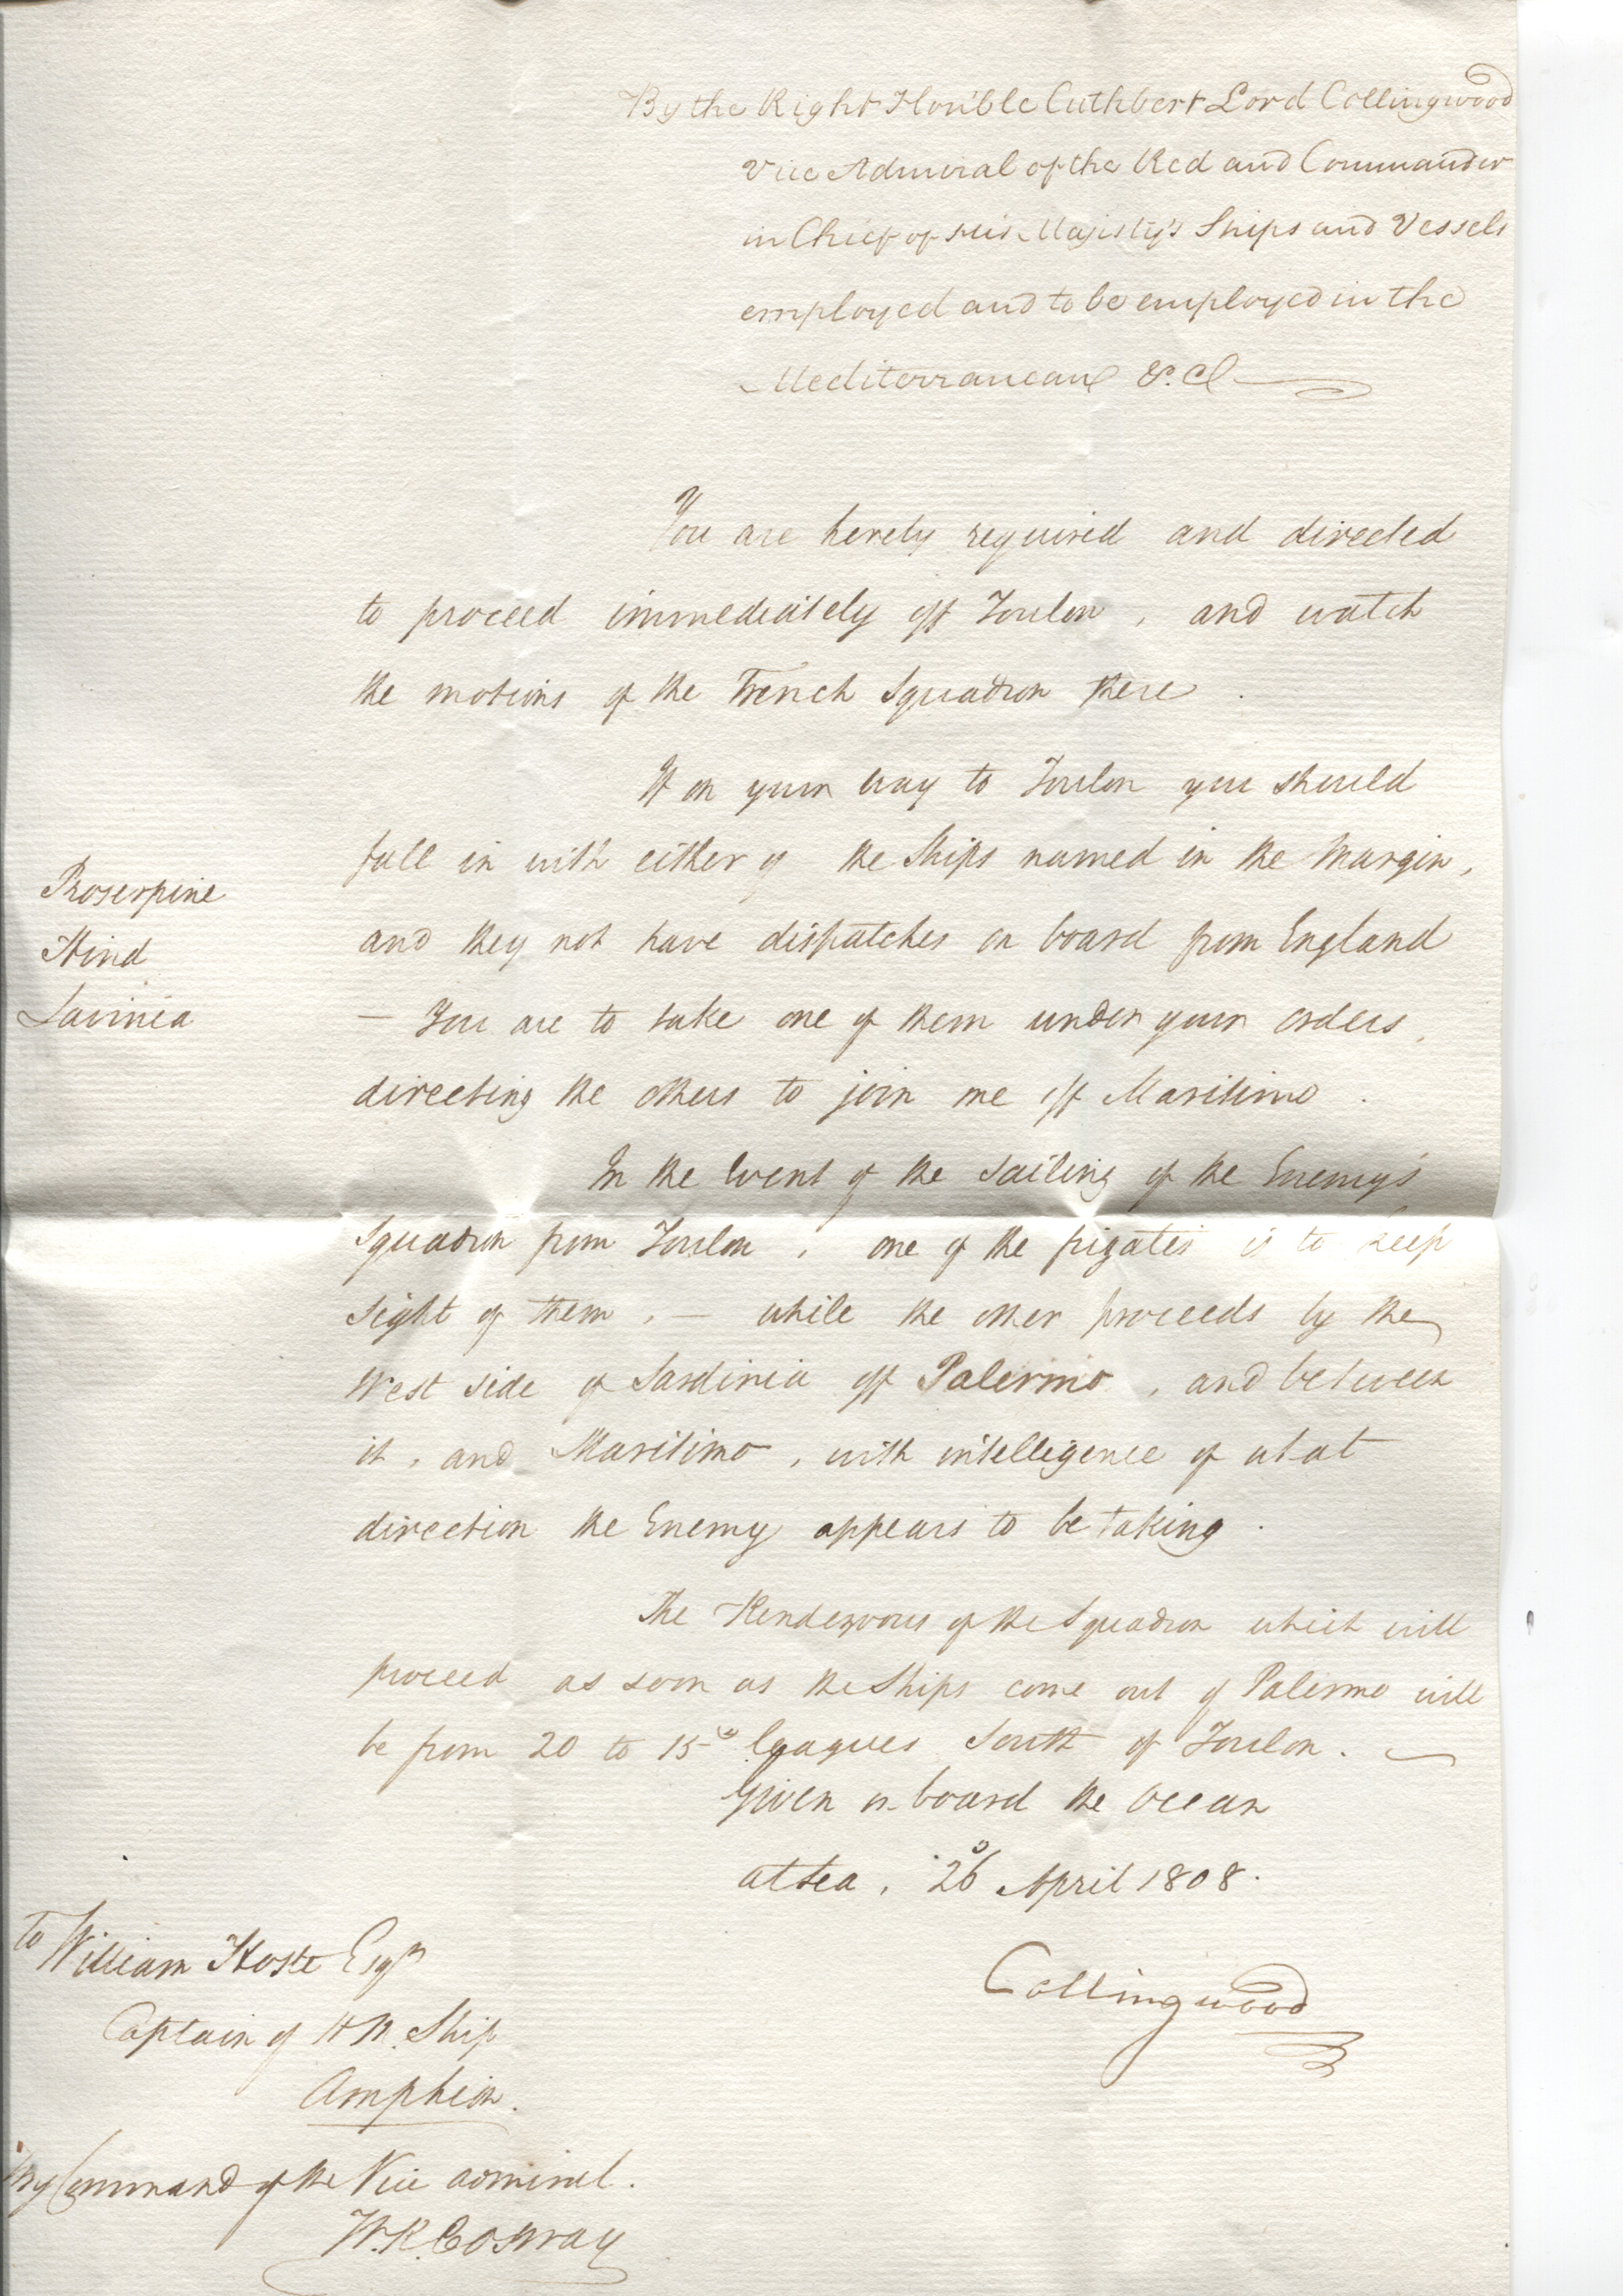 By the Right Hon'ble Cuthbert Lord Collingwood
Vice Admiral of the Red and Commander
in Chief of His Majesty's Ships and Vessels
employed and to be employed in the
Mediterranean &.c
You are hereby required and directed
to proceed immediately off Toulon, and watch
the motions of the French Squadron there.
If on your way to Toulon you should
fall in with either of the Ships named in the Margin,
Proserpine
Hind
Lavinia
and they not have dispatches on board from England
— You are to take one of them under your orders,
directing the others to join me off Maritimo.
In the Event of the sailing of the Enemy's
Squadron from Toulon, one of the frigates is to keep
sight of them, — while the other proceeds by the
West side of Sardinia off Palermo, and between
it, and Maritimo, with intelligence of what
direction the Enemy appears to be taking.
The Rendezvous of the Squadron which will
proceed as soon as the Ships come out of Palermo will
be from 20 to 15 leagues South of Toulon.
Given on board the Ocean
at Sea, 26 April 1808.
Collingwood
To William Hoste Esqr
Captain of H M. Ship
Amphion.
By Command of the Vice Admiral.
W. R. Cosway